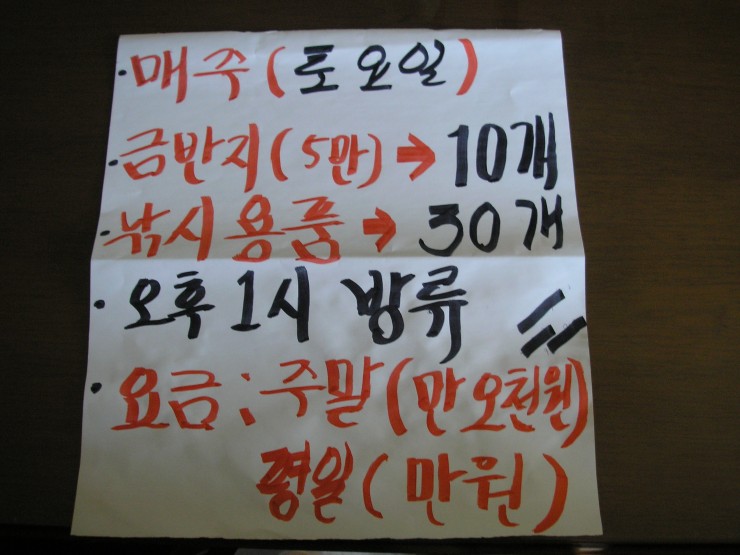 · 매주(토요일)
· 금반지(5만) → 10개
· 낚시용품 → 30개
· 오후 1시 방류 〃
· 요금 : 주말(만오천원)
평일(만원)